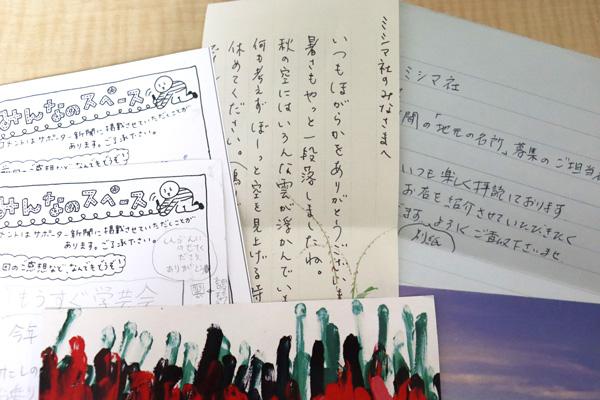 みんなのスペース
コメントはサポーター新聞に掲載させていただくことが
あります。ご了承下さい。
みんなのスペース
コメントはサポーター新聞に掲載させていただくことが
あります。ご了承下さい。
回のご感想など、なんでもどうぞ!
しんぶんい
ありがとう
もうすぐ学芸会
今年
ミシマ社のみなさまへ
いつもほがらかをありがとうございま
暑さもやっと一段落しましたね。
秋の空にはいろんな雲が浮かんでいま
何も考えずぼーっと空を見上げる時
休めてください。
ミシマ社
聞の「地元の名所」募集のご担当者
いつも楽しく拝読しております
お店を紹介させていただきたく
ます。よろしくご査収下さいませ
別紙